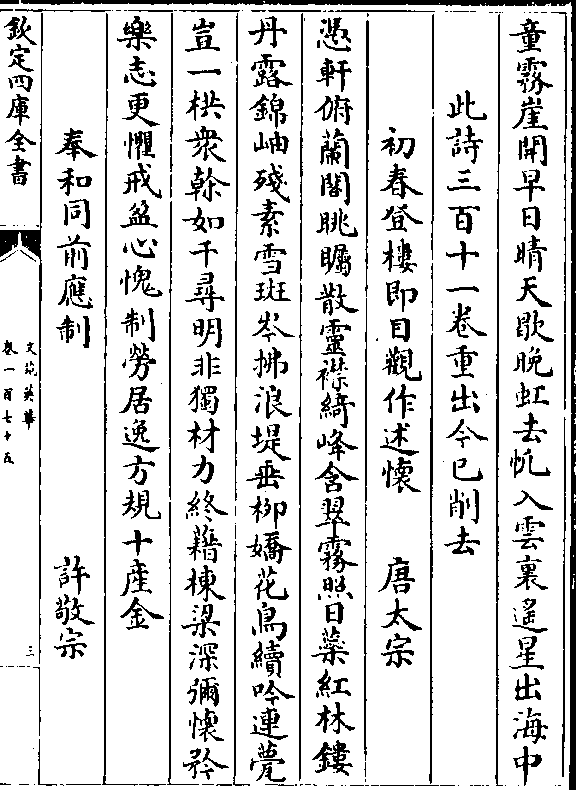 童霧崖開早日晴天歇晚虹去帆入雲裏遙星出海中
此詩三百十一卷重出今已削去
初春登樓即目觀作述懷　唐太宗
憑軒俯蘭閣眺矚散靈襟綺峰含翠霧照日蘂紅林鏤
丹露錦岫殘素雪斑岑拂浪堤垂柳嬌花鳥續吟連甍
豈一栱衆幹如千尋明非獨材力終藉棟梁深彌懷矜
樂志更懼戒盈心愧制勞居逸方規十產金
奉和同前應制　許敬宗
欽定四庫全書
文苑英華
卷一百七十五
三